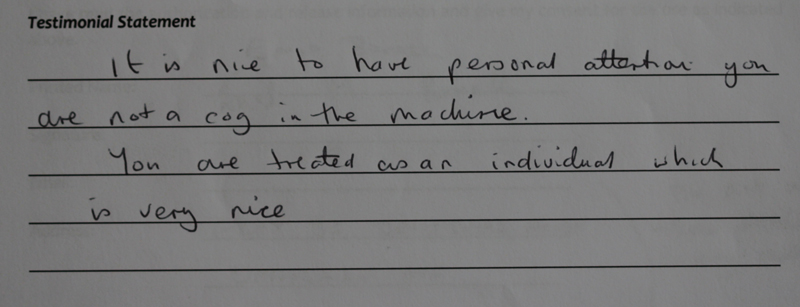 Testimonial Statement
It is nice to have personal attention you
are not a cog in the machine.
You are treated as an individual which
is very nice